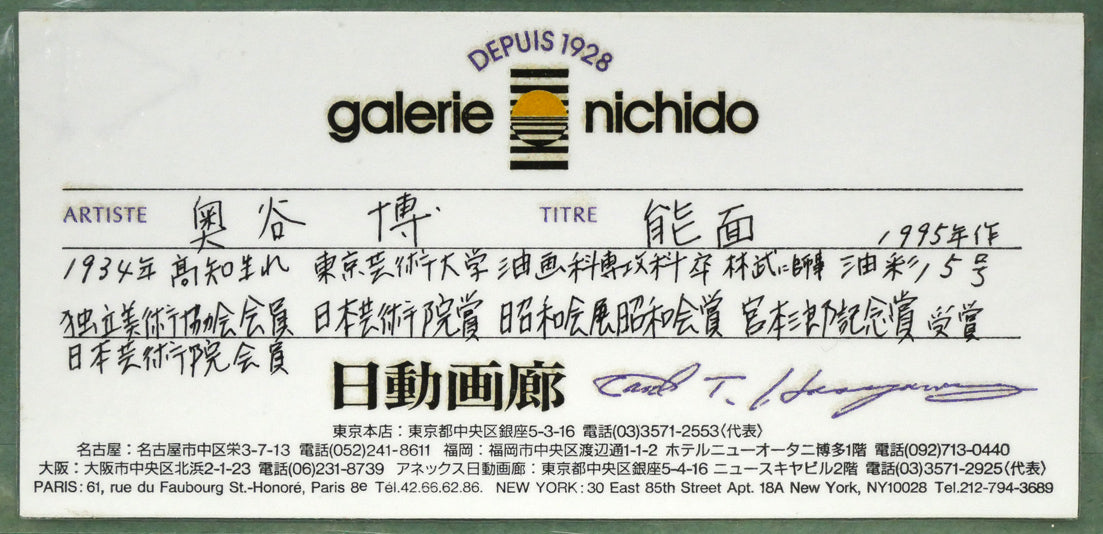 DEPUIS 1928
galerie nichido
ARTISTE 奥谷 博 TITRE 能面 1995年作
1934年 高知生れ 東京芸術大学 油画科専攻科卒 林武に師事 油彩15号
独立美術協会会員 日本芸術院賞 昭和会展昭和会賞 宮本三郎記念賞 受賞
日本芸術院会員
日動画廊
東京本店：東京都中央区銀座5-3-16 電話(03)3571-2553〈代表〉
名古屋：名古屋市中区栄3-7-13 電話(052)241-8611 福岡：福岡市中央区渡辺通1-1-2 ホテルニューオータニ博多1階 電話(092)713-0440
大阪：大阪市中央区北浜2-1-23 電話(06)231-8739 アネックス日動画廊：東京都中央区銀座5-4-16 ニュースキヤビル2階 電話(03)3571-2925〈代表〉
PARIS: 61, rue du Faubourg St.-Honoré, Paris 8e Tél.42.66.62.86. NEW YORK: 30 East 85th Street Apt. 18A New York, NY10028 Tel.212-794-3689